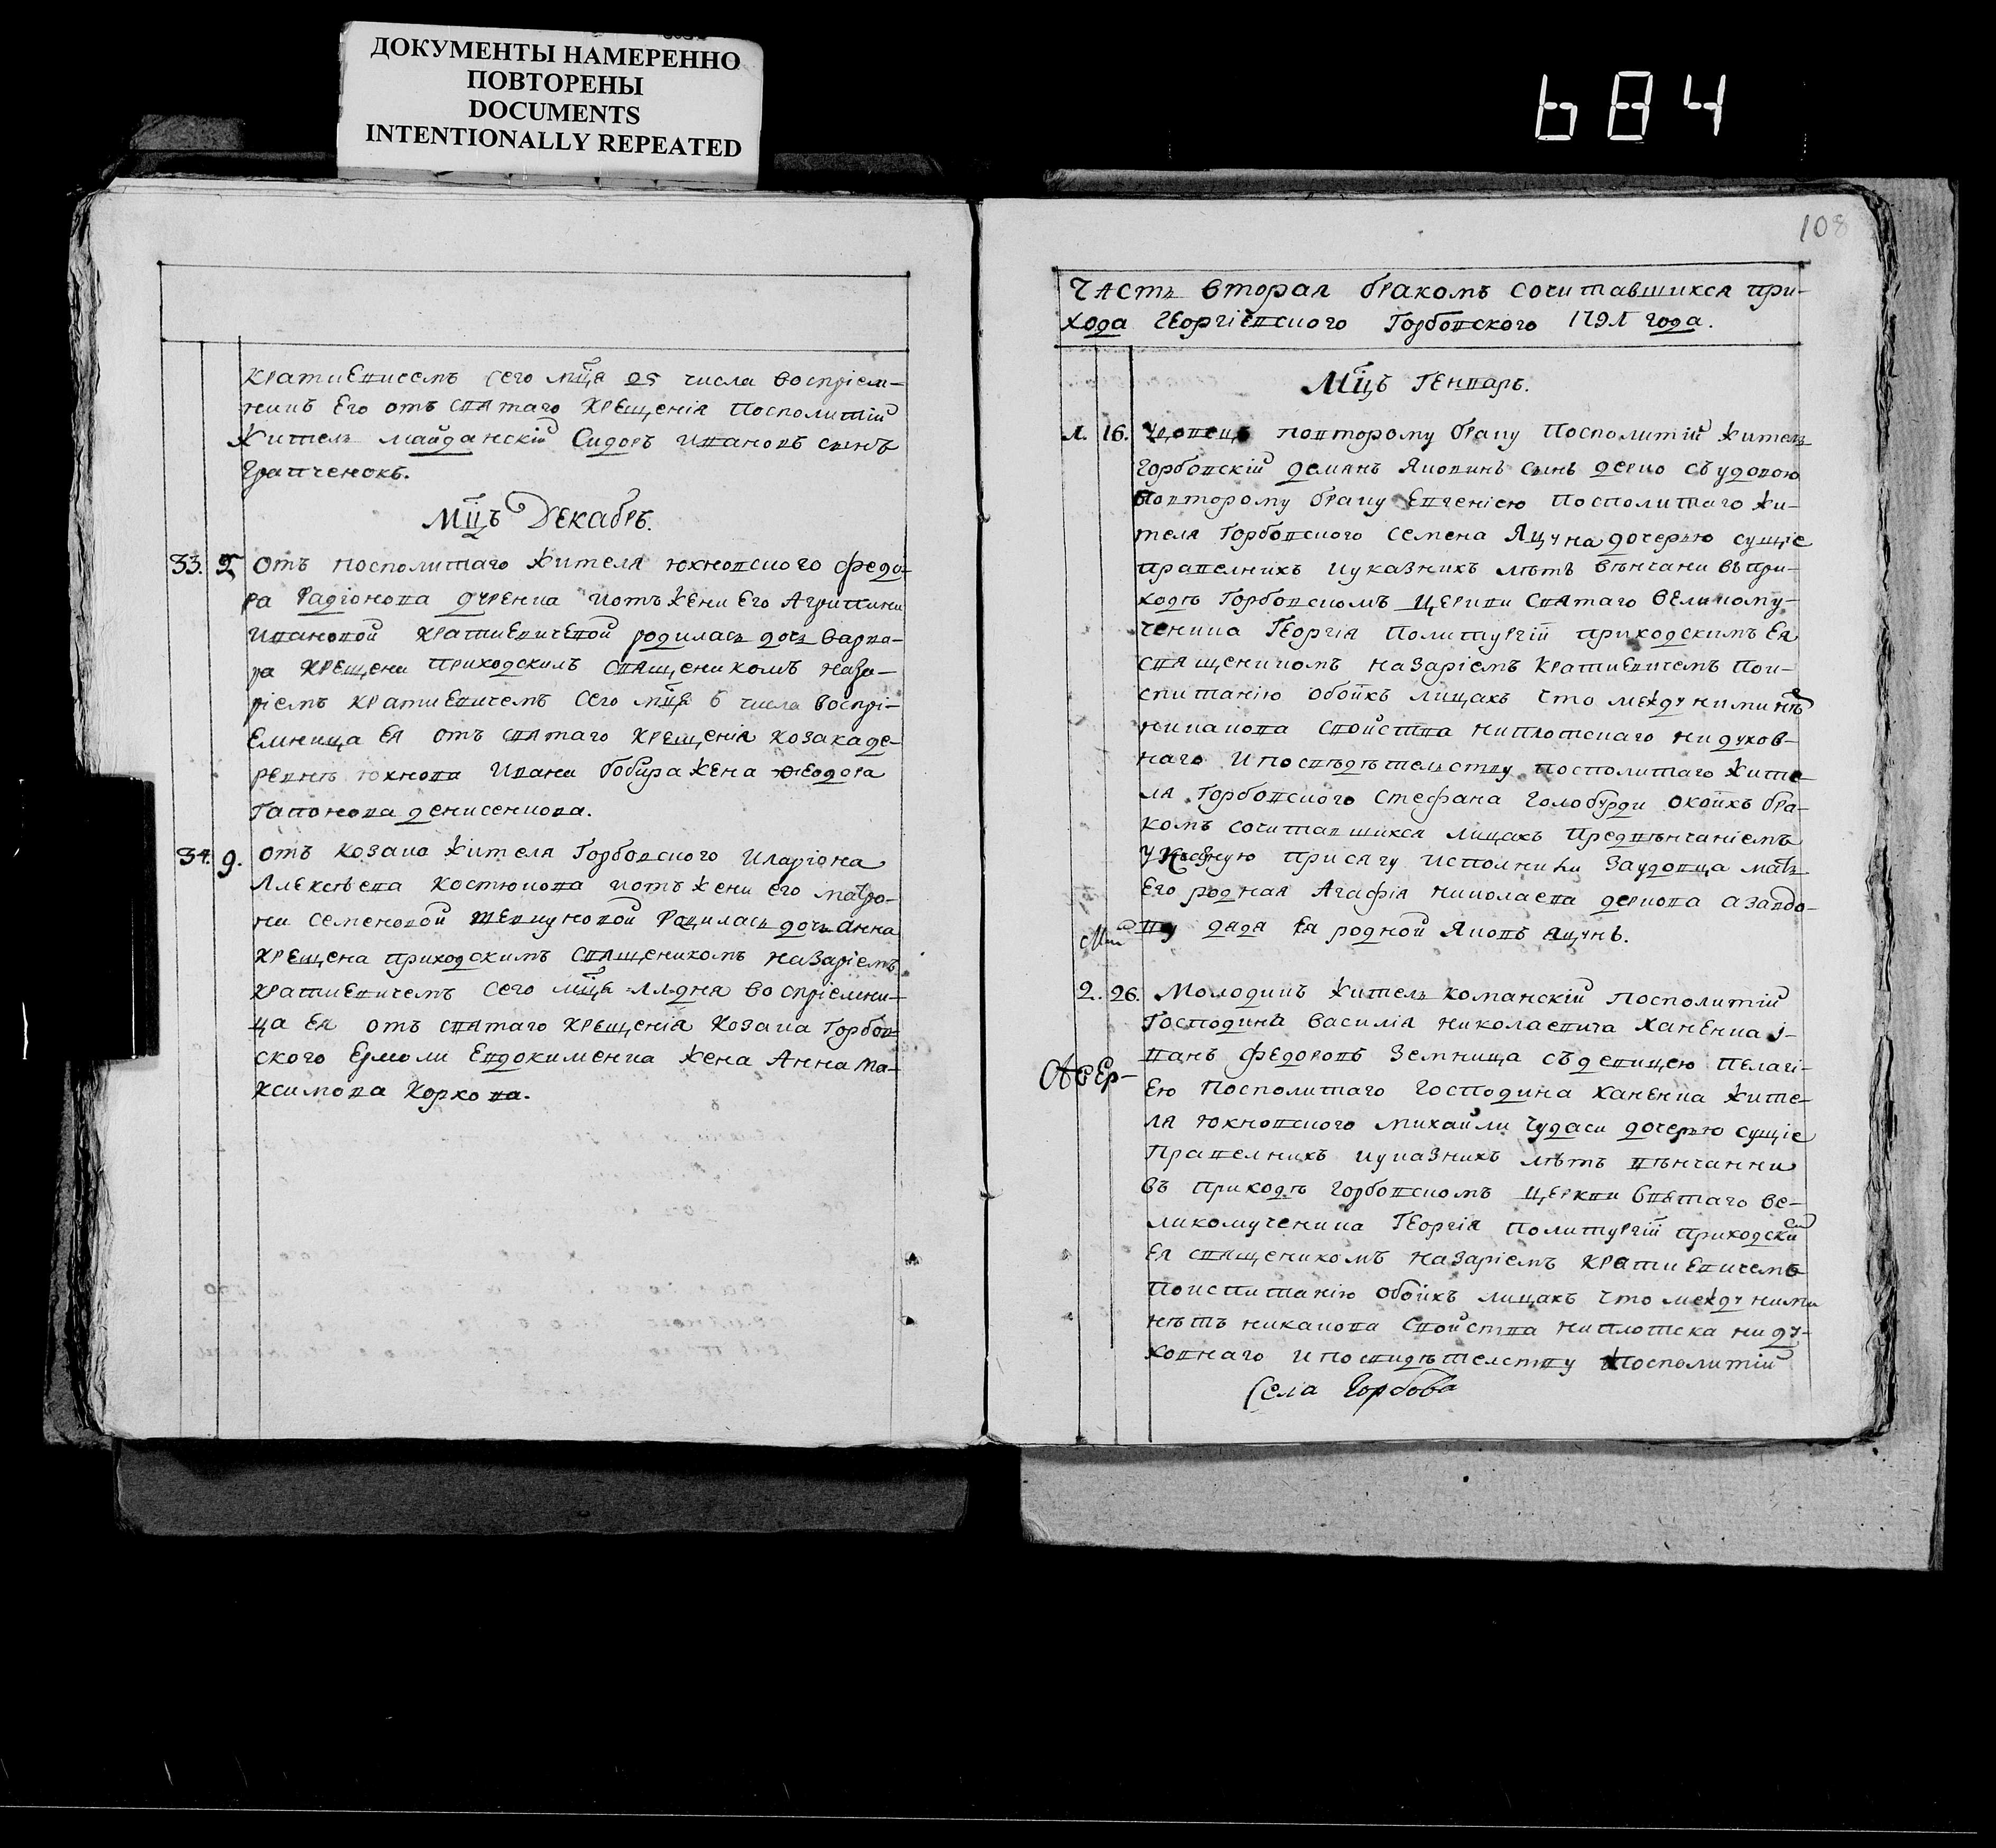 ДОКУМЕНТЫ НАМЕРЕННО
ПОВТОРЕНЫ
DOCUMENTS
INTENTIONALLY REPEATED
684
кратиевичемъ сего мца 25 числа воспріем-
никъ его отъ святаго крещенія посполитій
житель майданскій Сидоръ Ивановъ сынъ
мцъ Декабрь.
33. отъ посполитаго жителя юхновского федо-
ра Радіонова иотъ жени его Агрипини
Ивановой кратиевичевой родилась дочь варва-
ра крещени приходскимъ священикомъ наза-
ріемъ кратиевичемъ сего мца 6 числа воспрі-
емница ея отъ святаго крещенія козака де-
ревнѣ юхнова Ивани жена Феодора
Гапонова денисенкова.
34. 9. отъ козака жителя Горбовского Иларіона
Алексѣева костюкова иотъ жени его матро-
ни семеновой родилась дочь Анна
крещена приходскимъ священикомъ назаріемъ
кратиевичемъ сего мца 11 дня воспріемни-
ца ея отъ святаго крещенія козака Горбов-
ского Ермоли Евдокименка жена Анна ма-
ксимова Коркова.
108
Часть вторая бракомъ сочитавшихся при-
хода Георгіевского Горбовского 1791 года.
Мцъ Генварь.
1. 16. повторому браку посполитій житель
горбовскій демянъ Яковинъ сынъ дерко съ удовою
повторому браку Евгеніею посполитаго жи-
теля Горбовского семена Яцуна дочерью сущіе
правелнихъ иуказнихъ лѣтъ вѣнчани въ при-
ходѣ Горбовскомъ церкви святаго великому-
ченика Георгія политургіи приходскимъ ея
священикомъ назаріемъ кратиевичемъ пои-
спитанію обойхъ лицахъ что между ними нѣтъ
никакова свойства ниплотскаго ни духов-
наго Ипосвѣдѣтельству посполитаго жите-
ля Горбовского Стефана голобурди окойхъ бра-
комъ сочитавшихся лицахъ предвѣнчаніемъ
указную присягу исполнили Заудовца мать
его родная Агафія николаева деркова азавдо-
ву дядя ея родной Яковъ яцунъ.
2. 26. Молодикъ житель команскій посполитій
Господина василія николаевича ханенка і-
ванъ Федоровъ Земница съ девицею пелагі-
ею посполитаго господина ханенка жите-
ля юхновского михайли чудаси дочерью сущіе
правелнихъ иуказнихъ лѣтъ вѣнчанни
въ приходѣ горбовскомъ церкви святаго ве-
ликомученика Георгія политургіи приходскимъ
ея священикомъ назаріемъ кратиевичемъ
поиспитанію обойхъ лицахъ что между ними
нѣтъ никакова свойства ниплотска ни ду-
ховнаго ипосвидѣтелству посполитій
Села Горбова